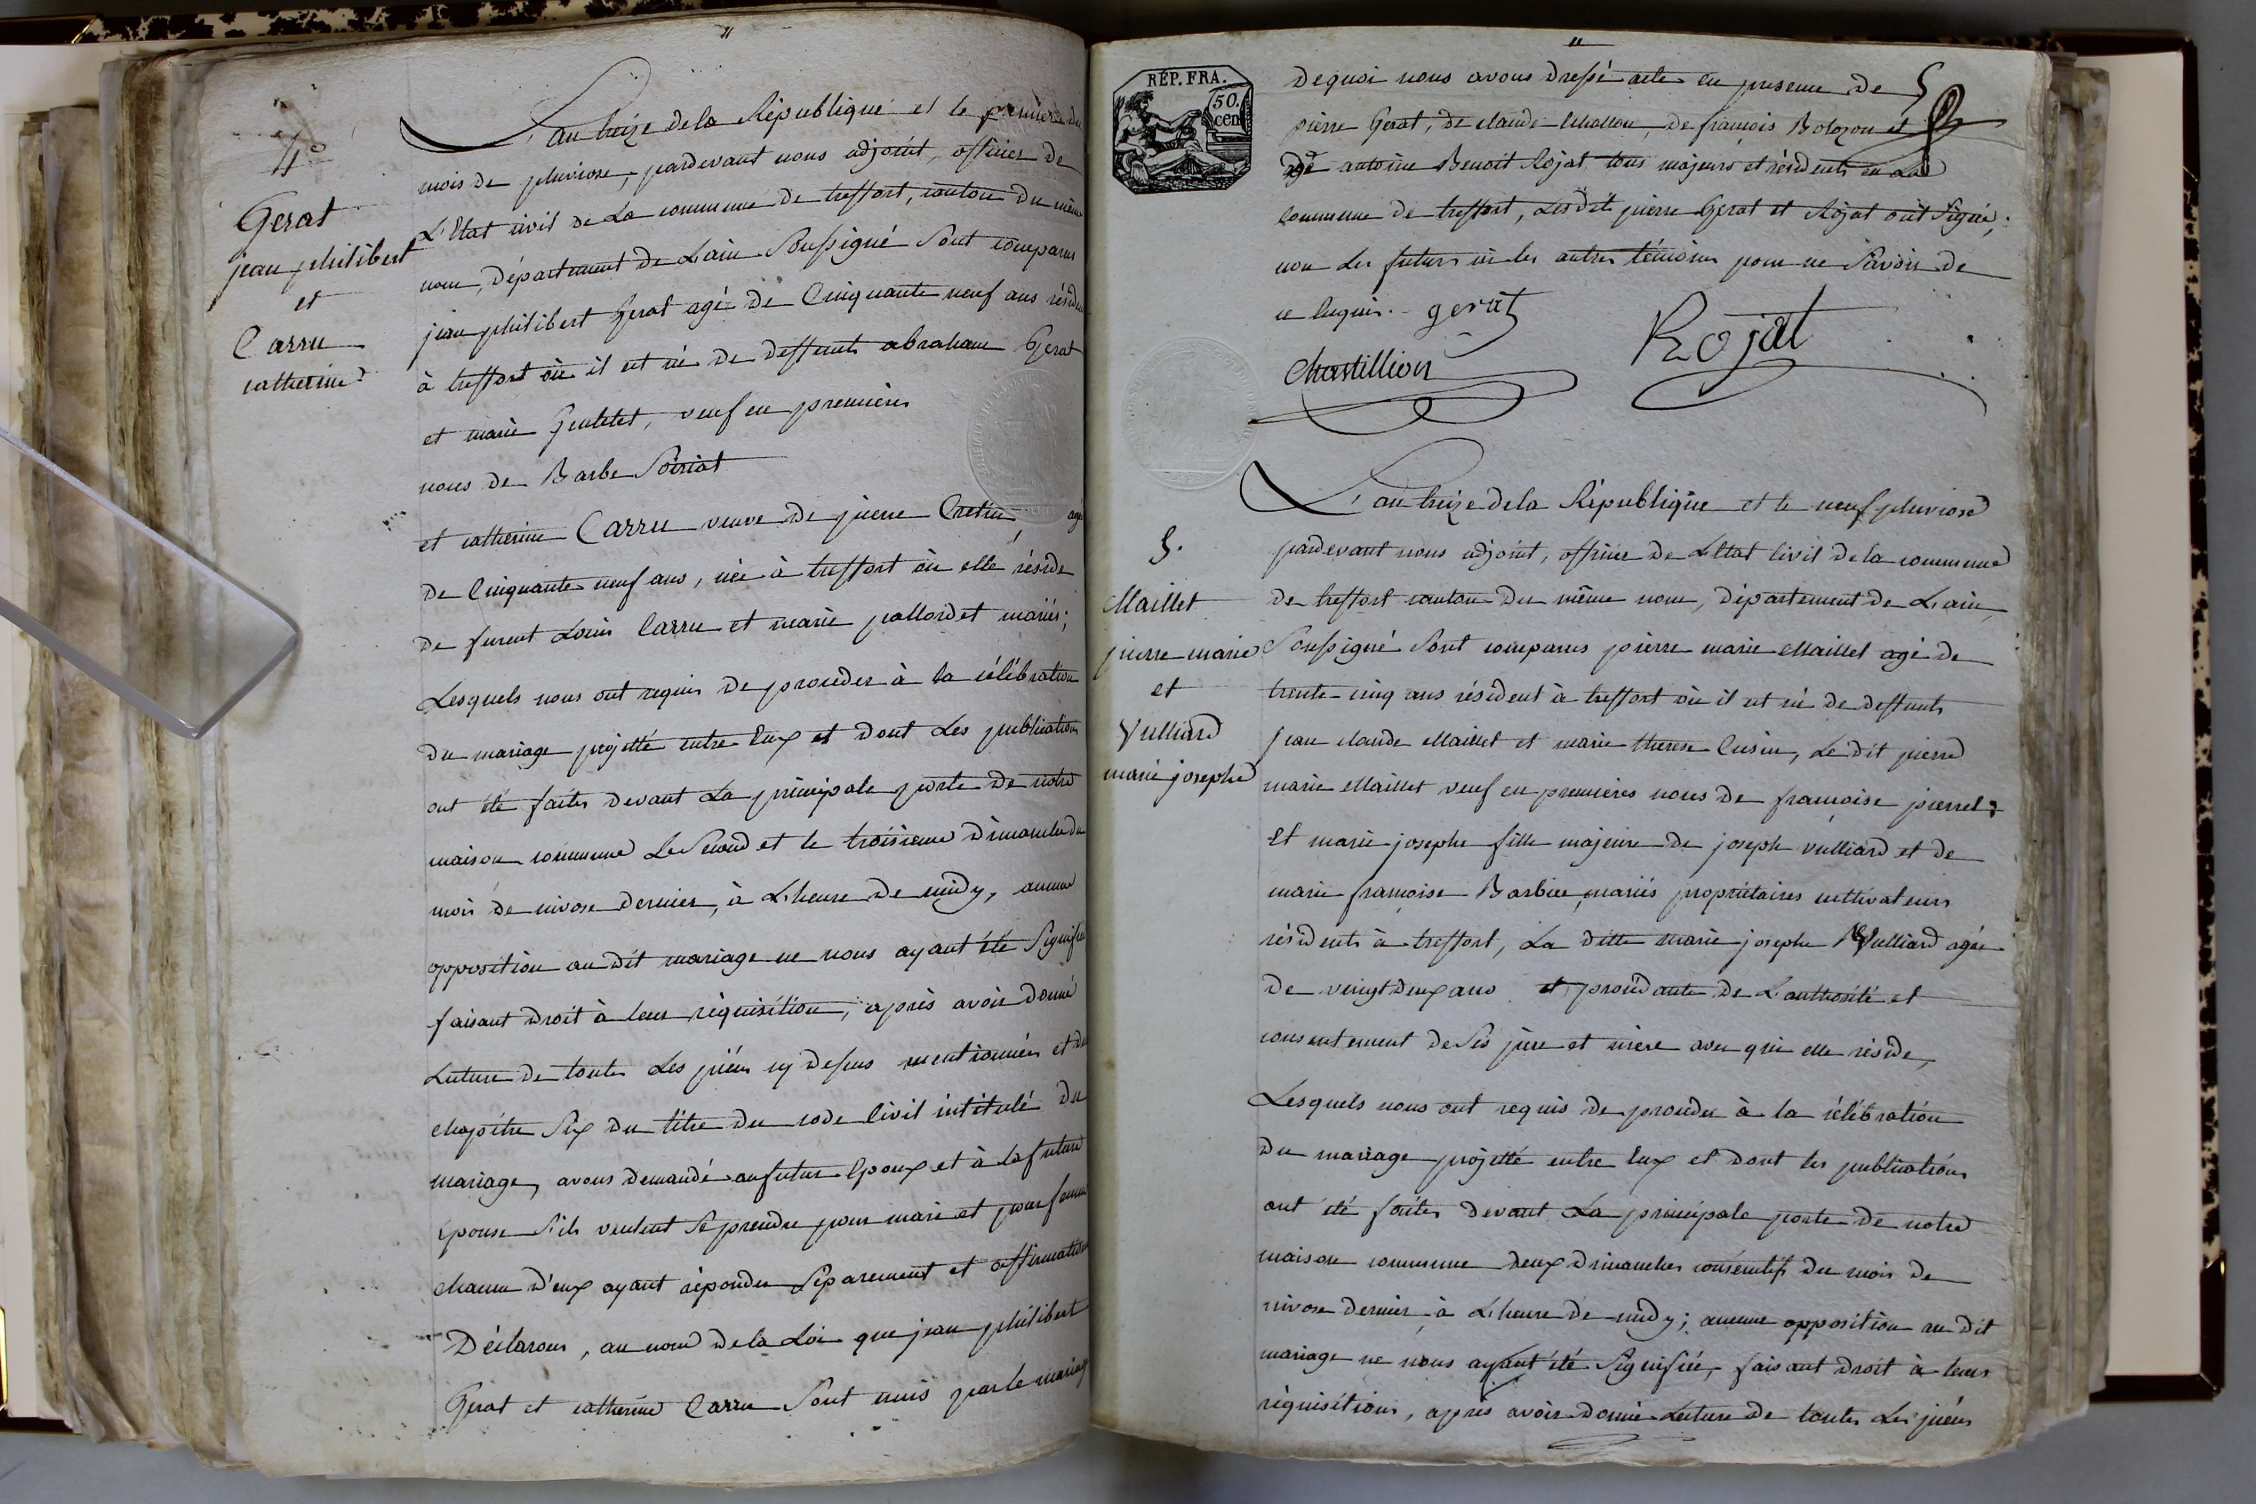 4°
Gerat
jean philibert
et
Carru
catherine
L'an treize de la République et le premier du
mois de pluviose, pardevant nous adjoint, officier de
L'Etat civil de La commune de treffort, canton du même
nom, Département de L'ain Soussigné Sont comparus
jean philibert Gerat agé de Cinquante neuf ans résidu
à treffort où il est né de deffunts abraham Gerat
et marie Gentelet, veuf en premieres
noces de Barbe Soiriat
et catherine Carru veuve de pierre Cretin, agé
de Cinquante neuf ans, née à treffort où elle réside
de furent Louis Carru et marie pallordet mariés;
Lesquels nous ont requis de proceder à la célébration
du mariage projetté entre Eux et dont Les publications
ont été faites devant La principale porte de notre
maison commune Le Second et le troisieme Dimanche du
mois de nivose dernier, à L'heure de midy, aucune
opposition au dit mariage ne nous ayant été Signifiée
faisant droit à leur réquisition, après avoir donné
Lecture de toutes Les pièces cy dessus mentionnées et du
chapitre Six du titre du code Civil intitulé du
mariage, avons demandé au futur Epoux et à la future
Epouse S'ils veulent Se prendre pour mari et pour femme
chacun d'eux ayant répondu Séparement et affirmative
Déclarons, au nom de la Loi que jean philibert
Gerat et catherine Carru Sont unis par le mariage
RÉP. FRA.
50.
cen
De quoi nous avons dressé acte en presence de
pierre Gerat, de claude Chatton, de françois Bolozon et
de antoine Benoit Rojat tous majeurs et résidents en La
Commune de treffort, Les dits pierre Gerat et Rojat ont Signé,
non Les futurs ni les autres témoins pour ne Savoir de
ce Enquis. gerat
Rojat
Chastillion
5.
Maillet
pierre marie
et
Vulliard
marie josephe
L'an treize de la République et le neuf pluviose
pardevant nous adjoint, officier de L'Etat Civil de la commune
de treffort canton du même nom, département de L'ain,
Soussigné Sont comparus pierre marie Maillet agé de
trente-cinq ans résident à treffort où il est né de deffunts
jean claude Maillet et marie therese Cusin, Le dit pierre
marie Maillet veuf en premieres noces de françoise pierrel;
Et marie josephe fille majeure de joseph vulliard et de
marie françoise Barbier, mariés propriétaires cultivateurs
résidents à treffort, La ditte marie josephe Vulliard agée
de vingt deux ans et procédante de L'authorité et
consentement de Ses père et mère avec qui elle réside,
Lesquels nous ont requis de proceder à la célébration
du mariage projetté entre Eux et dont les publications
ont été faites devant La principale porte de notre
maison commune deux dimanches consécutifs du mois de
nivose dernier, à L'heure de midy; aucune opposition au dit
mariage ne nous ayant été Signifiée, faisant droit à leurs
réquisitions, après avoir donné Lecture de toutes Les pièces